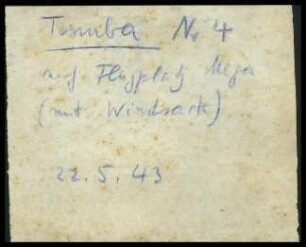 Tumba Nr 4
auf Flugplatz Mega
(mit Windsack)
22.5.43